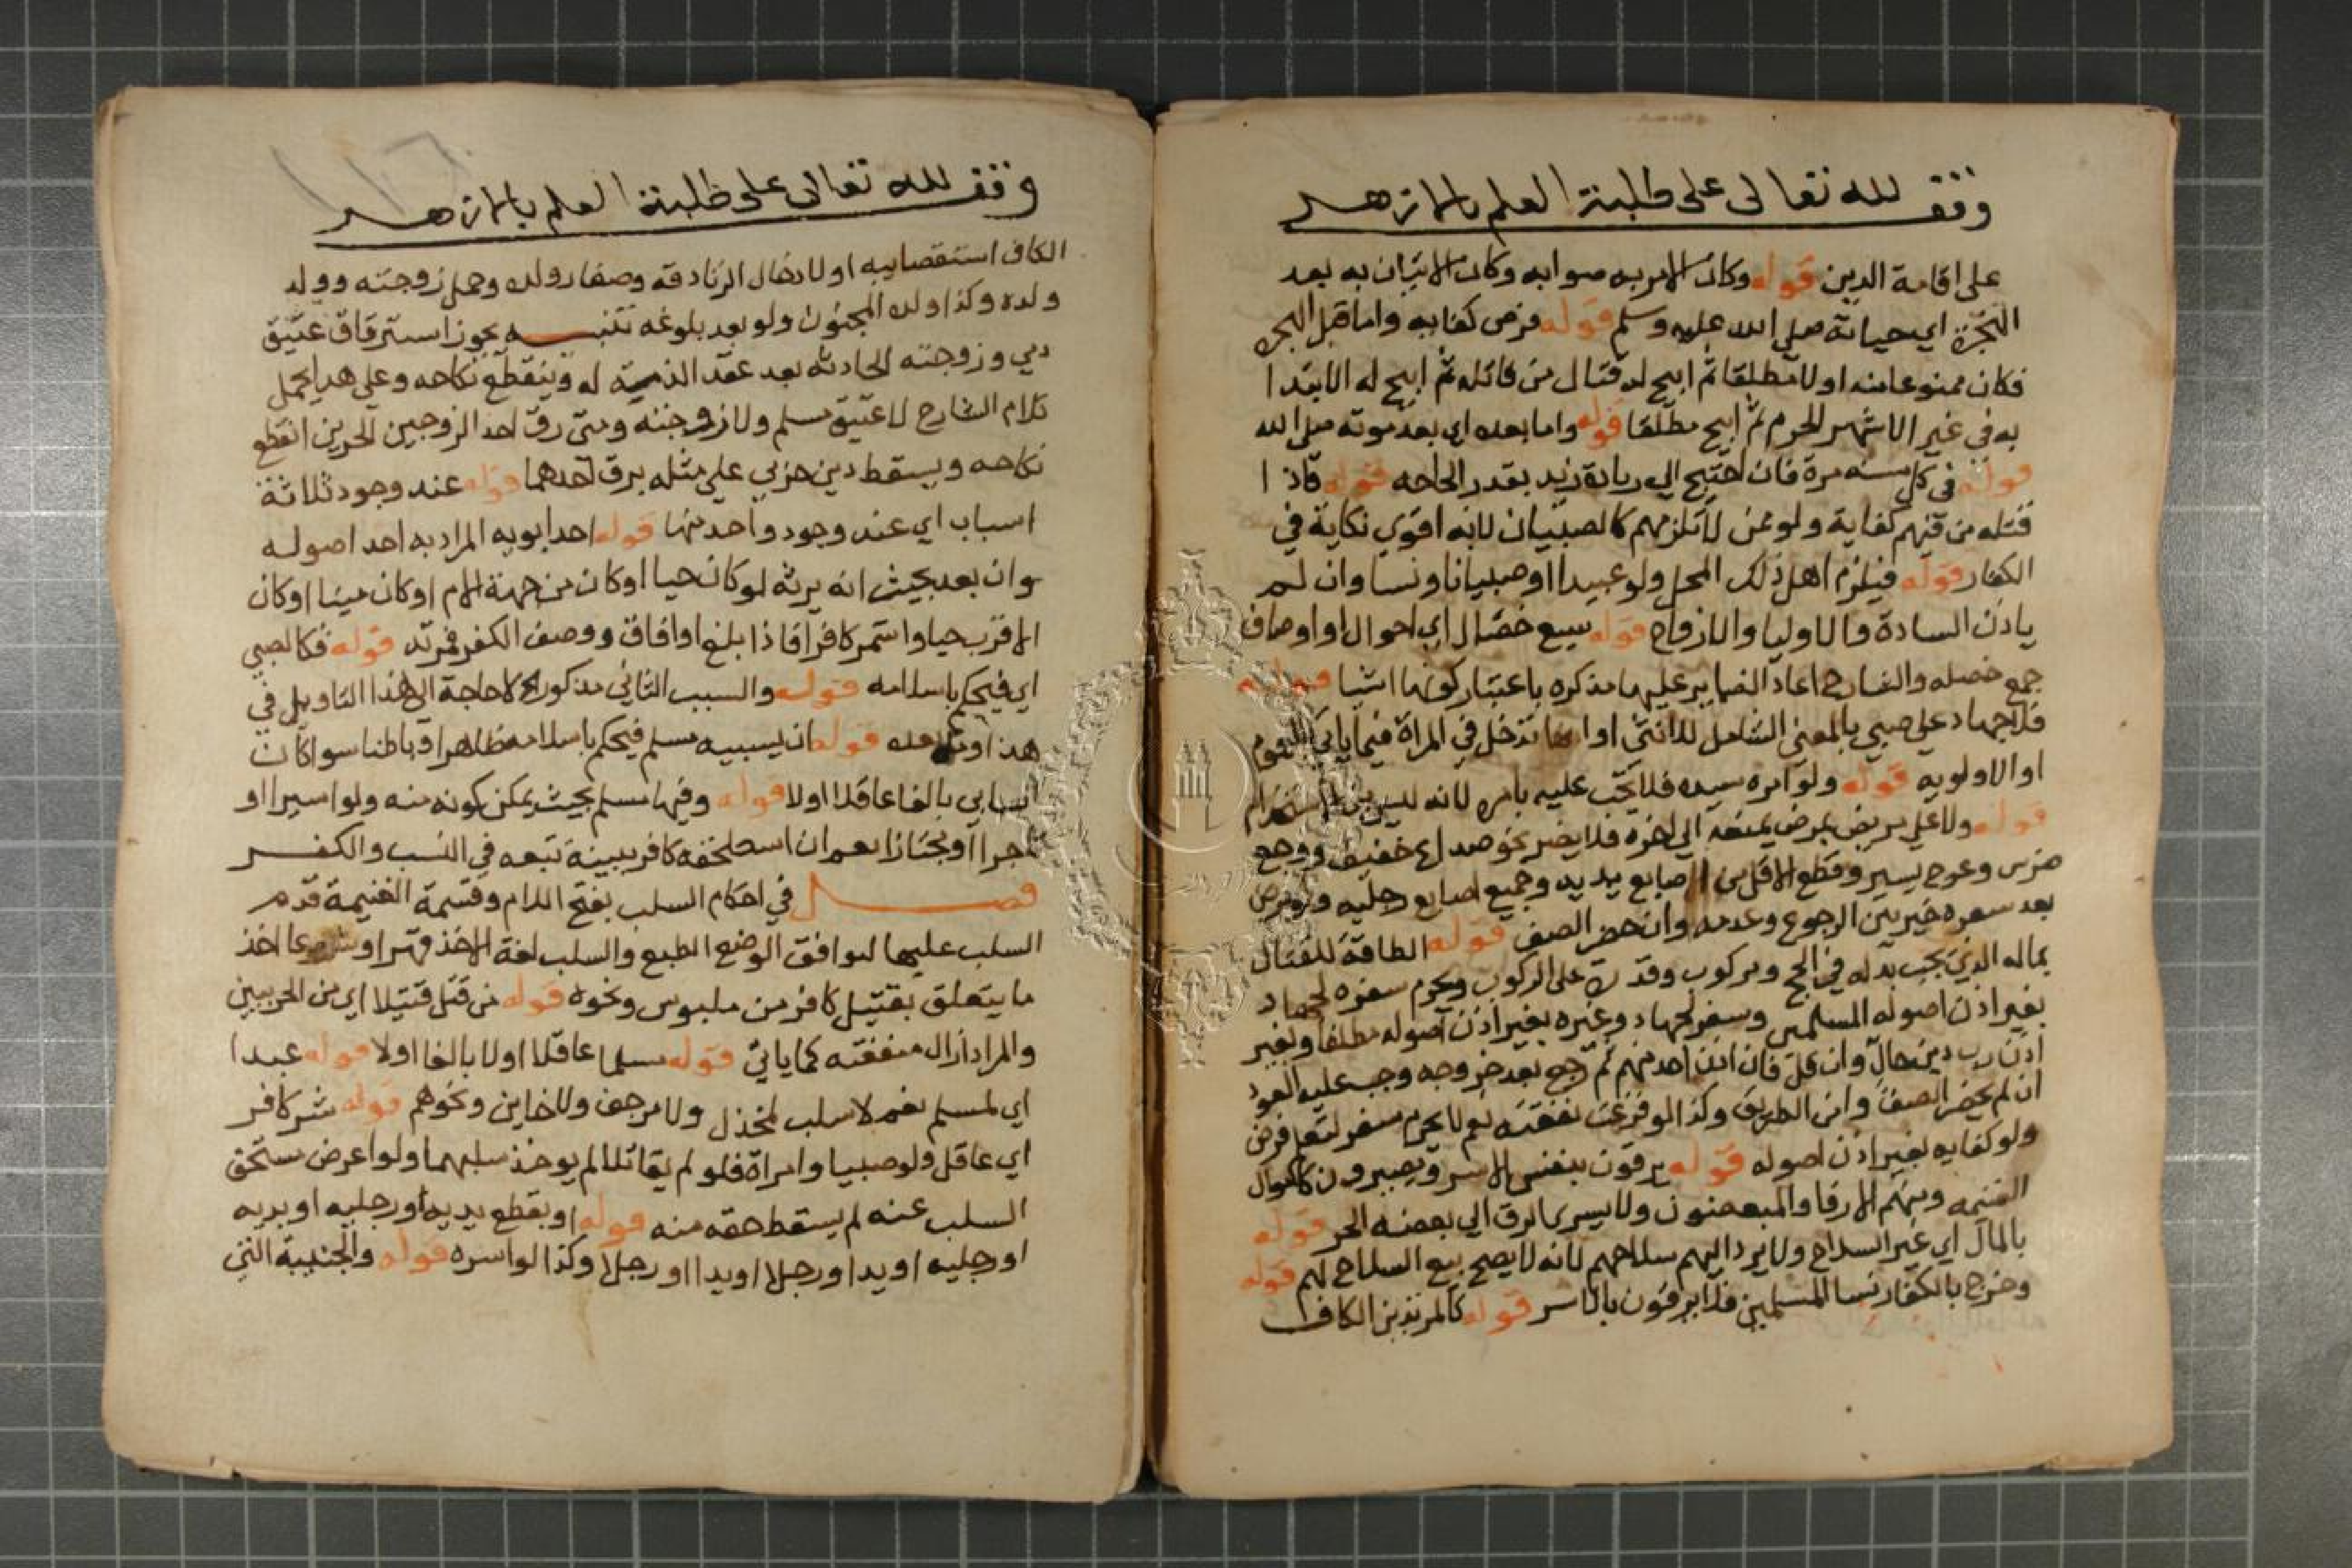 وقف لله تعالى على طلبة العلم بالازهر
على اقامة الدين قوله وكان الامر به صوابه وكان الاتيان به بعد
الهجرة اي حياته صلى الله عليه وسلم قوله فرض كفايه واما قبل الهجره
فكان ممنوعا منه اولا مطلقا ثم ابيح له قتال من قاتله ثم ابيح له الابتدا
به في غير الاشهر الحرم ثم ابيح مطلقا قوله واما بعده اي بعد موته صلى الله
قوله في كل سنه مرة فان احتيج الي زيادة زيد بقدر الحاجه قوله فاذا
قتله من فيهم كفاية ولو ممن لا تلزمهم كالصبيان لانه اقوي نكاية في
الكفار قوله فيلزم اهل ذلك المحل ولو عبيدا او صبيانا ونسا وان لم
ياذن السادة والاوليا والازواج قوله سبع خصال اي احوال او اوصاف
جمع خصله والشارح اعاد الضماير عليها مذكره باعتبار كونها اشيا قوله
فلا جهاد علي صبي بالمعني الشامل للانثي او انها تدخل في المراة فيما ياتي بالعموم
او الاولويه قوله ولو امره سيده فلا يجب عليه بامره لانه ليس من الاستخدام
قوله ولا علي مريض بمرض يمنعه الي اخره فلا يضر نحو صداع خفيف ووجع
ضرس وعرج يسير وقطع الاقل من اصابع يديه وجميع اصابع رجليه ولو مرض
بعد سفره خير بين الرجوع وعدمه وان حضر الصف قوله الطاقة للقتال
بماله الذي يجب بذله في الحج ومركوب وقدرة على الركوب ويحرم سفره لجهاد
بغير اذن اصوله المسلمين وسفر لجهاد وغيره بغير اذن اصوله مطلقا وبغير
اذن رب دين حال وان قل فان اذن احد منهم ثم رجع بعد خروجه وجب عليه العود
ان لم يحضر الصف وامن الطريق وكذا لو فرغت نفقته نعم لا يحرم سفر لتعلم فرض
ولو كفايه بغير اذن اصوله قوله يرقون بنفس الاسر ويصيرون كاموال
الغنيمه ومنهم الارقا والمبعضون ولا يسري الرق الي بعضه الحر قوله
بالمال اي غير السلاح ولا يرد اليهم سلاحهم لانه لا يصح بيع السلاح لهم قوله
وخرج بالكفار نسا المسلمين فلا يرقون بالاسر قوله كالمرتد بن الكاف
وقف لله تعالى على طلبة العلم بالازهر
الكاف استقصاييه او لادخال الزنادقه وصغار ولده وحمل زوجته وولد
ولده وكذا ولده المجنون ولو بعد بلوغه تنبيه يجوز استرقاق عتيق
ذمي وزوجته الحادثه بعد عقد الذمية له وينقطع نكاحه وعلي هذا يحمل
كلام الشارح لا عتيق مسلم ولا زوجته ومتى رق احد الزوجين الحرين انقطع
نكاحه ويسقط دين حربي علي مثله برق احدهما قوله عند وجود ثلاثة
اسباب اي عند وجود واحد منها قوله احد ابويه المراد به احد اصوله
وان بعد بحيث انه يرثه لو كان حيا او كان من جهة الام او كان ميتا او كان
الاقرب حيا واستمر كافرا فاذا بلغ او افاق ووصف الكفر فمرتد قوله فكالصبي
اي فيحكم باسلامه قوله والسبب الثاني مذكور الخ لا حاجة الى هذا التاويل في
هذا وما بعده قوله ان يسبيه مسلم فيحكم باسلامه ظاهرا وباطنا سوا كان
السابي بالغا عاقلا او لا قوله وفيها مسلم بحيث يمكن كونه منه ولو اسيرا او
تاجرا او مجتازا نعم ان استلحقه كافر ببينة تبعه في النسب والكفر
فصل في احكام السلب بفتح اللام وقسمة الغنيمة قدم
السلب عليها ليوافق الوضع الطبع والسلب لغة الاخذ قهرا وشرعا اخذ
ما يتعلق بقتيل كافر من ملبوس ونحوه قوله من قتل قتيلا اي من الحربيين
والمراد ازال منفعته كما ياتي قوله مسلما عاقلا اولا بالغا اولا قوله عبدا
اي لمسلم نعم لا سلب لمخذل ولا مرجف ولا خاين ونحوهم قوله شر كافر
اي عاقل ولو صبيا وامراة فلو لم يقاتلا لم يوخذ سلبهما ولو اعرض مستحق
السلب عنه لم يسقط حقه منه قوله او بقطع يديه او رجليه او يديه
او رجليه او يدا ورجلا او يدا او رجلا وكذا لو اسره قوله والجنيبة التي